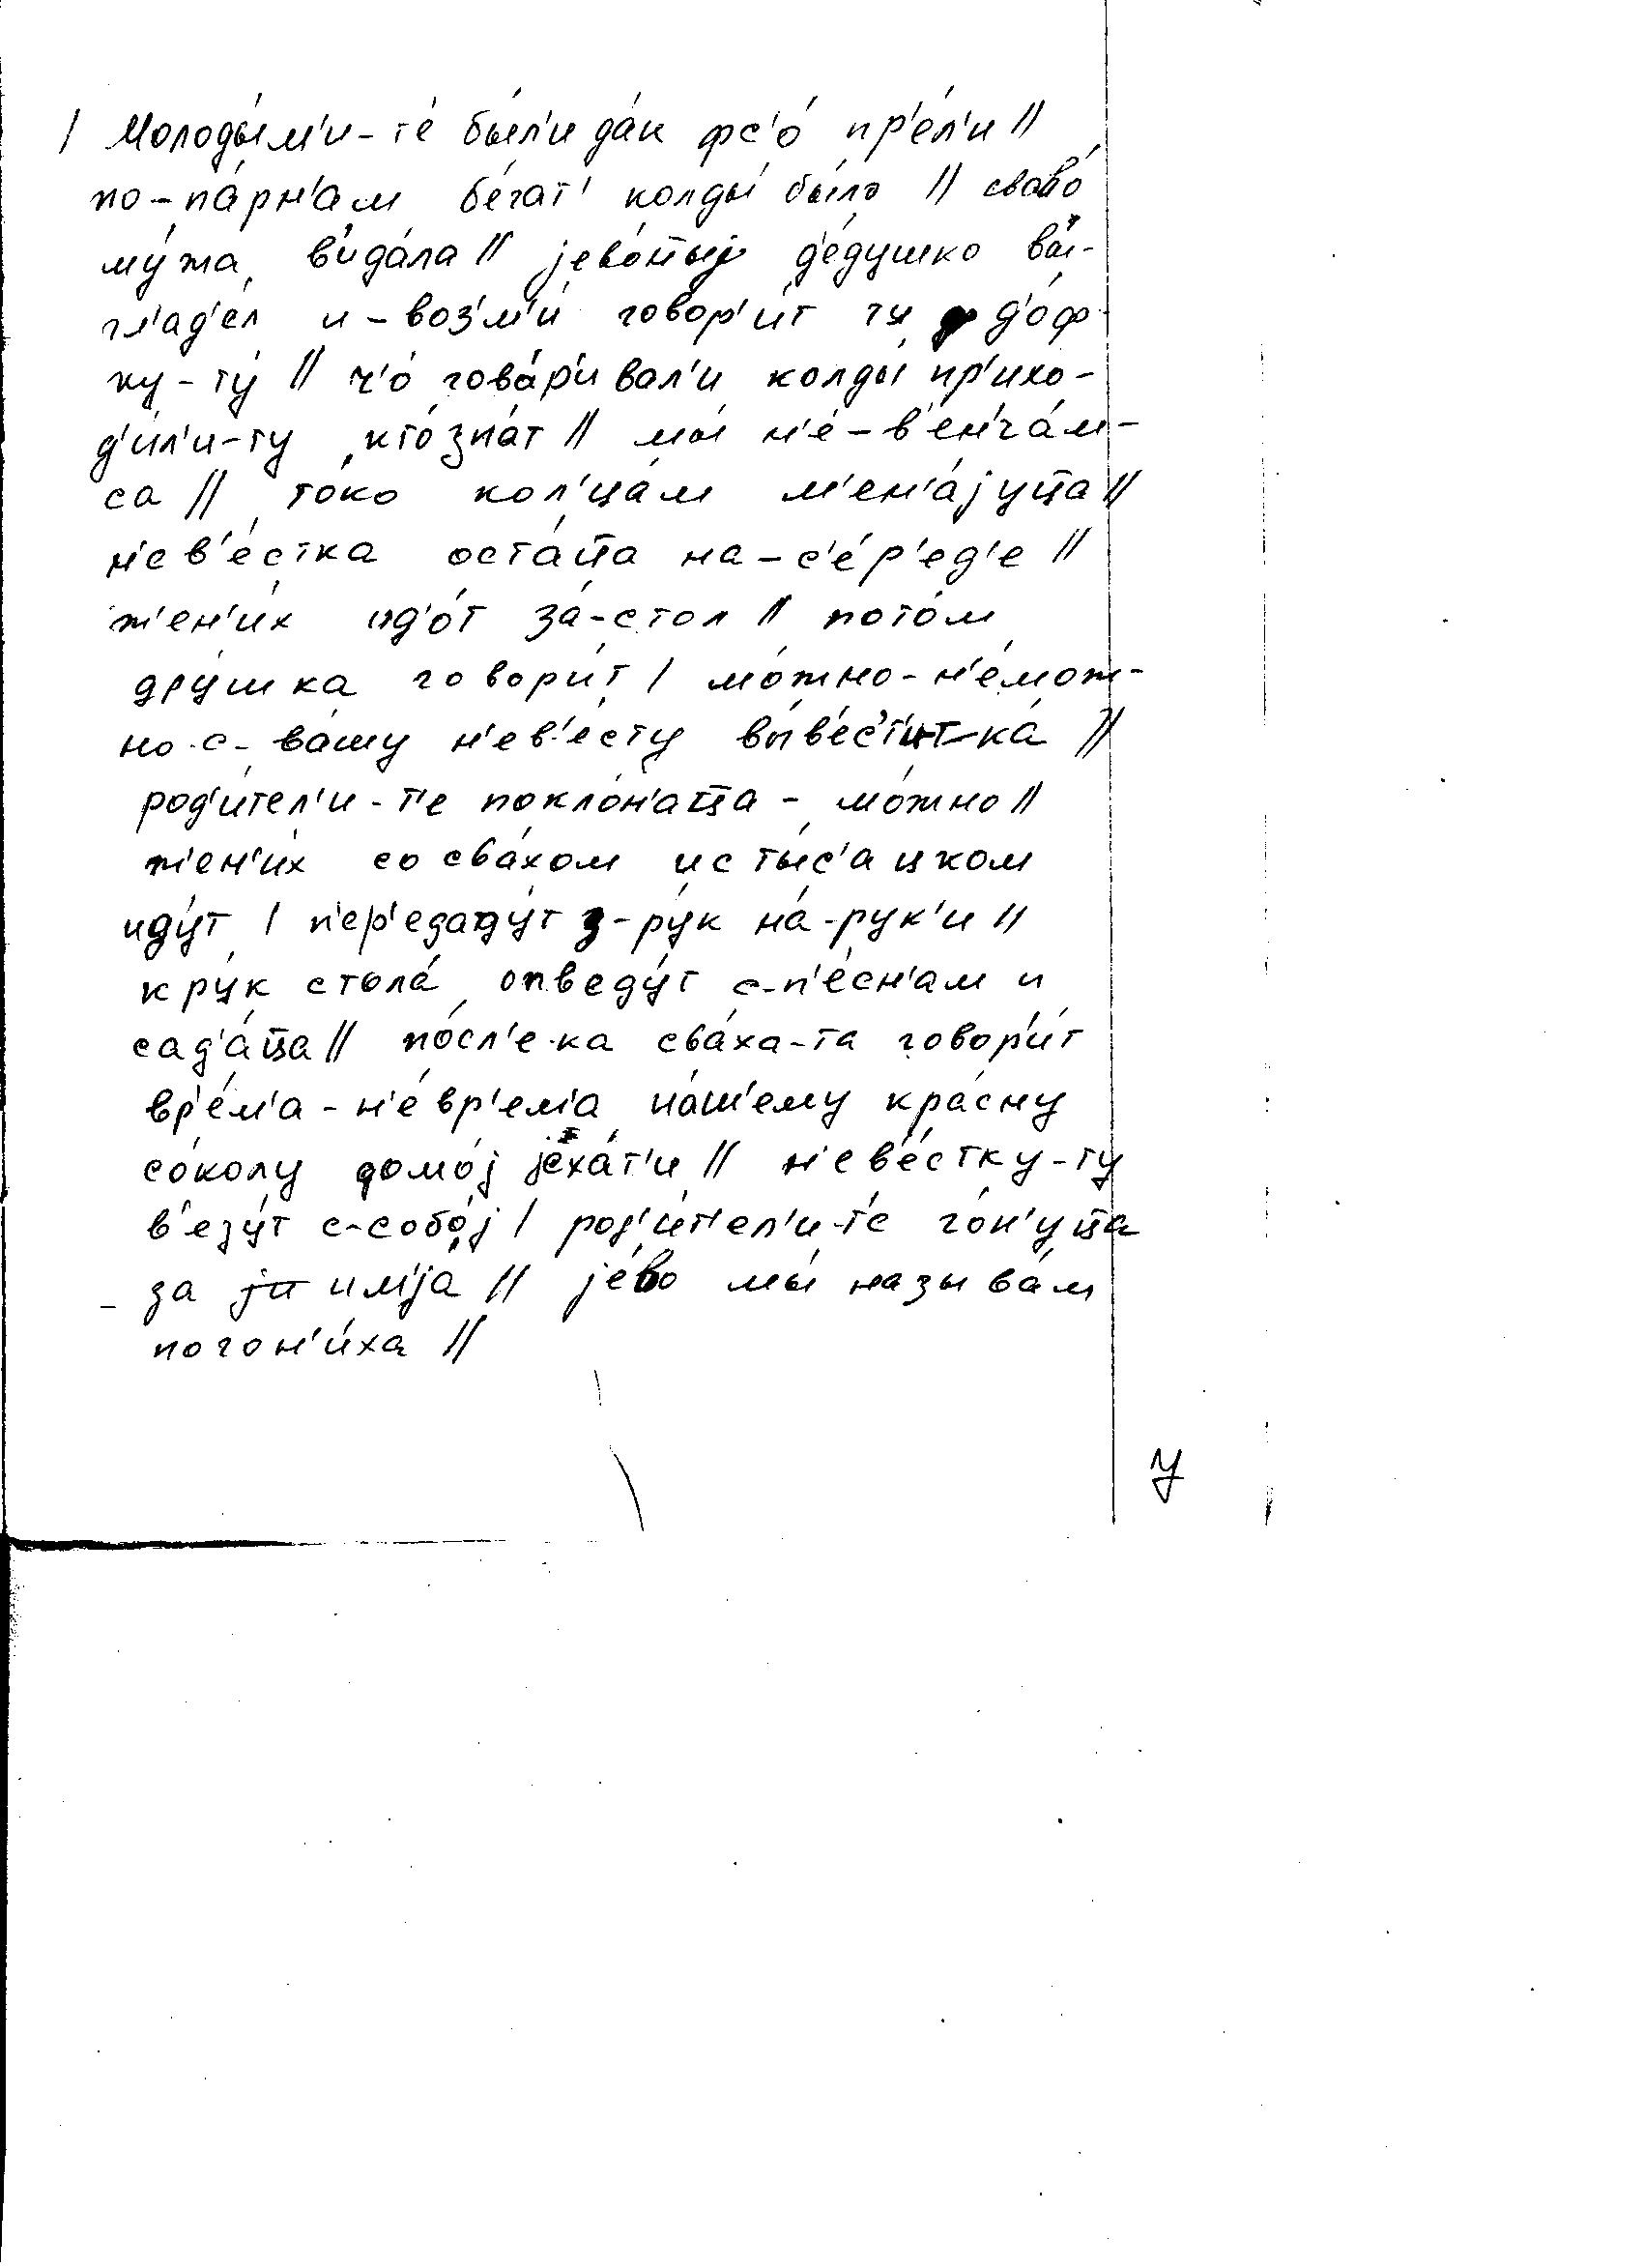 / Молоды́м'и-т'е́ бы́л'и да́к фс'о́ пр'е́л'и //
по-па́рн'ам б'е́гат' колды́ бы́ло // свово́
му́жа в'ида́ла // jево́ны́j д'е́душко вы́-
гл'ад'ел и-воз'м'и́ говор'и́т ту д'о́ф-
ку-ту́ // ч'о́ гова́р'ивал'и колды́ пр'ихо-
д'и́л'и-ту кто́зна́т // мы́ н'е́-в'ен'ча́м-
са // то́ко кол'ца́м м'ен'а́jуц̄а //
н'ев'е́стка оста́ц̄а на-с'е́р'ед'е //
ж'ен'и́х ид'о́т за́-стол // пото́м
дру́шка говори́т / мо́жно-н'е́мож-
но-с- ва́шу н'ев'е́сту вы́в'ес'т'и-ка́ //
род'и́тел'и-т'е покло́н'ац̄а - мо́жно //
ж'ен'и́х со сва́хом и с ты́с'ацком
иду́т / п'ер'едаду́т з-ру́к на́-рук'и //
кру́к стола́ опведу́т с-п'е́сн'ам и
сад'а́ц̄а // по́сл'е-ка сва́ха-та говор'и́т
вр'е́м'а-н'е́вр'ем'а на́ш'ему кра́сну
со́колу домо́j jеха́т'и // н'ев'е́стку-ту
в'езу́т с-собо́j / род'и́т'ел'и-т'е го́н'уц̄а
за им'jа́ // jево́ мы́ называ́м
погон'и́ха //
У